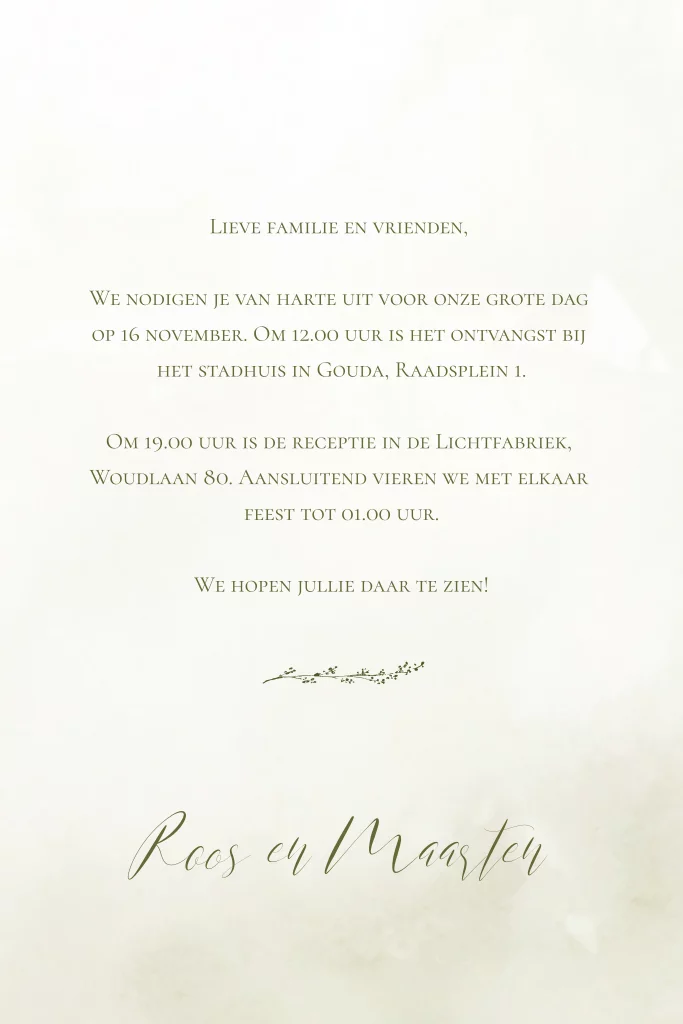 Lieve familie en vrienden,
We nodigen je van harte uit voor onze grote dag
op 16 november. Om 12.00 uur is het ontvangst bij
het stadhuis in Gouda, Raadsplein 1.
Om 19.00 uur is de receptie in de Lichtfabriek,
Woudlaan 80. Aansluitend vieren we met elkaar
feest tot 01.00 uur.
We hopen jullie daar te zien!
Roos en Maarten